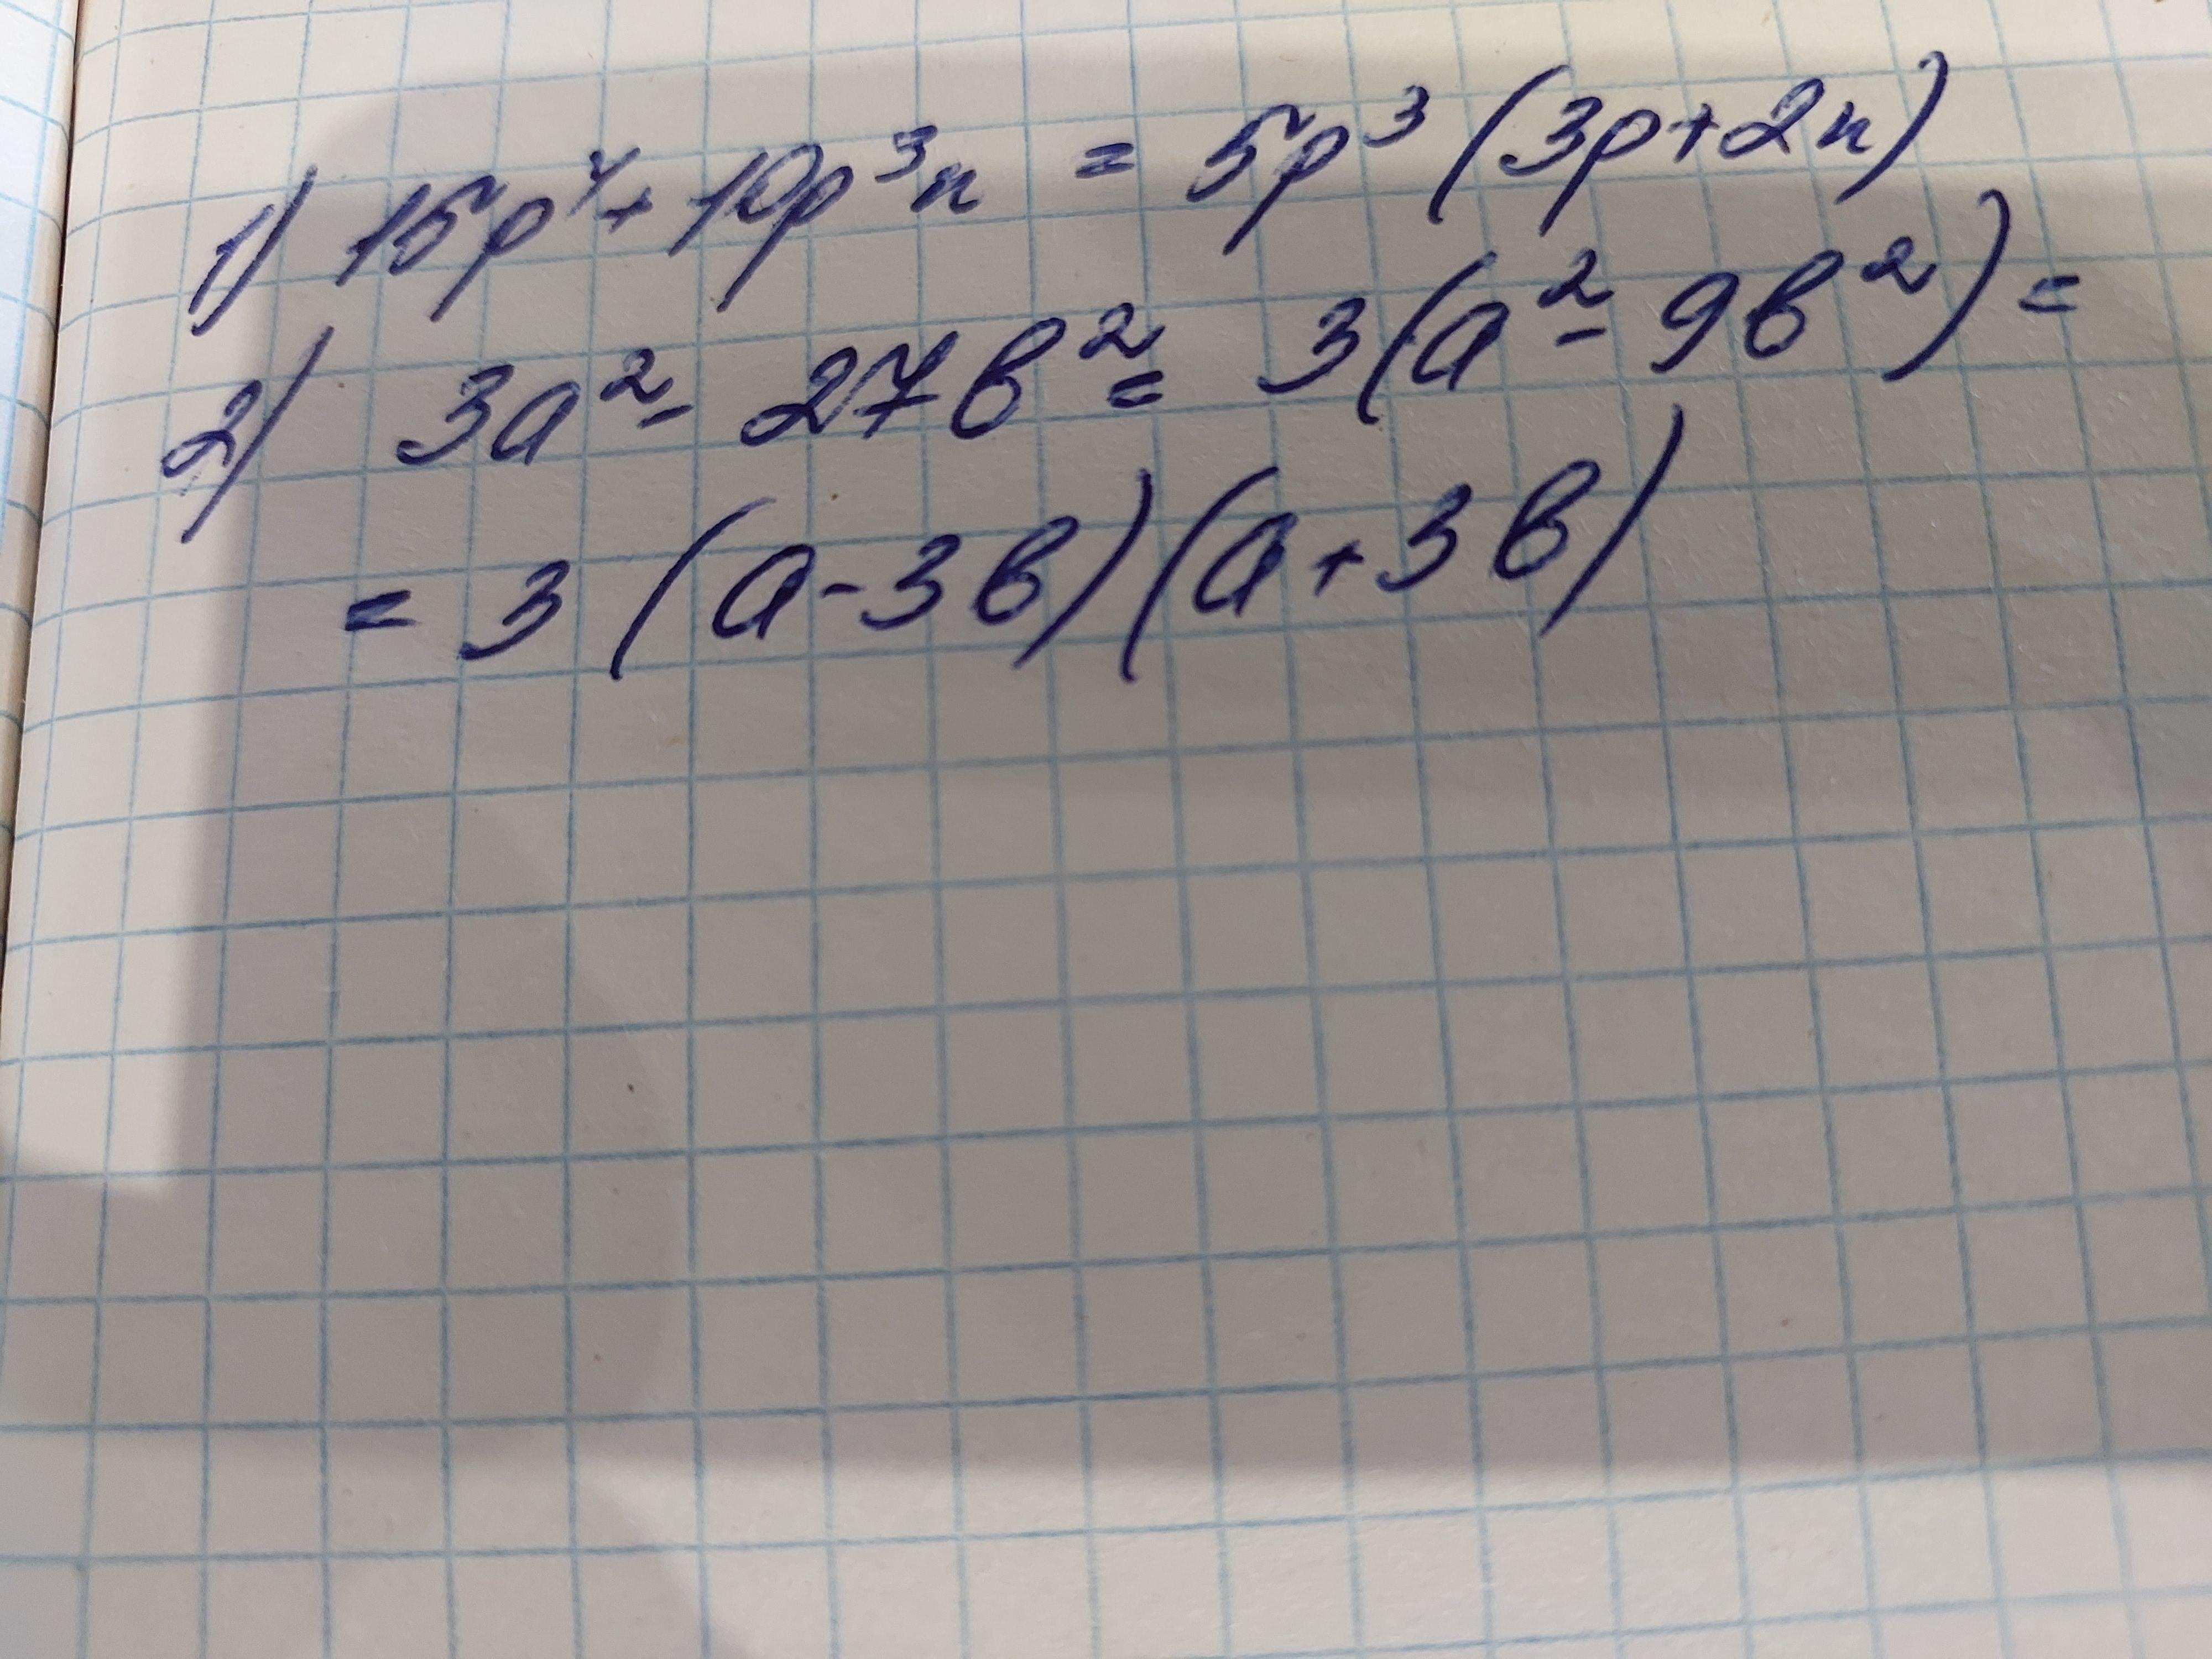 1) 15p⁴+ 10p³n = 5p³(3p+2n)
2) 3a²- 27b²= 3(a²- 9b²)=
= 3(a-3b)(a+3b)